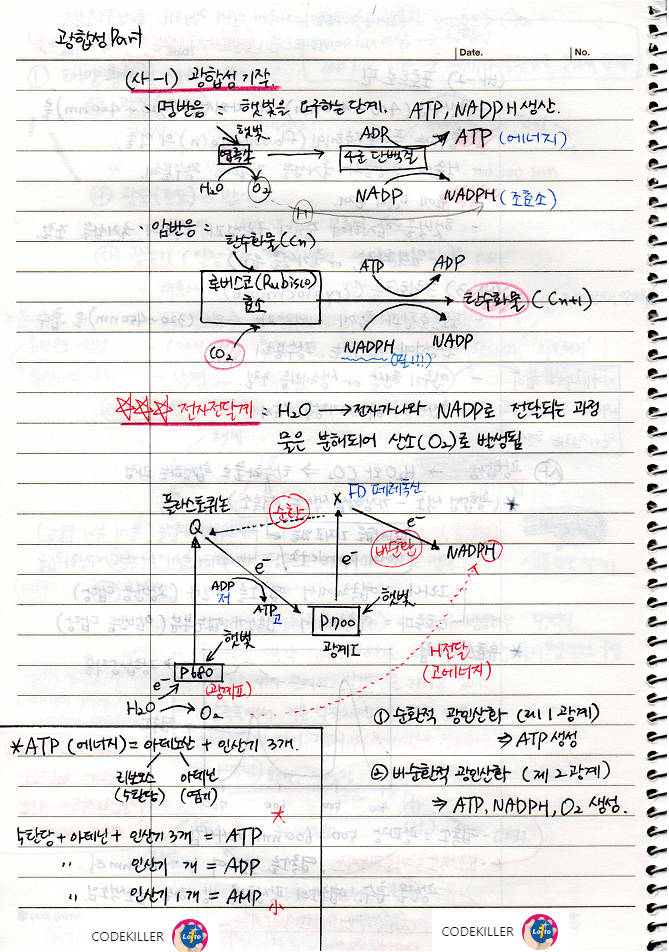 광합성 Part
Date.
No.
(사-1) 광합성 기작.
· 명반응 = 햇빛을 요구하는 단계. ATP, NADPH 생산.
햇빛
엽록소
4군 단백질
ADP
ATP (에너지)
H₂O
O₂
NADP
NADPH (조효소)
H
· 암반응 =
탄수화물 (Cn)
루비스코(Rubisco)
효소
ATP
ADP
탄수화물 (Cn+1)
CO₂
NADPH
(필!!!)
NADP
☆☆☆ 전자전달계 = H₂O → 전자가 나와 NADP로 전달되는 과정
물은 분해되어 산소(O₂)로 발생됨
플라스토퀴논
Q
순환
X
FD 페레독신
e⁻
비순환
NADPH
e⁻
e⁻
ADP
저
ATP
고
P700
햇빛
광계 I
햇빛
P680
(광계Ⅱ)
e⁻
H₂O → O₂
H전달
(고에너지)
① 순환적 광인산화 (제 1 광계)
⇒ ATP 생성
② 비순환적 광인산화 (제 2 광계)
⇒ ATP, NADPH, O₂ 생성.
* ATP (에너지) = 아데노신 + 인산기 3개.
리보오스
(5탄당)
아데닌
(염기)
5탄당 + 아데닌 + 인산기 3개 = ATP
大
〃 인산기 개 = ADP
〃 인산기 1개 = AMP
小
CODEKILLER
Lotto
CODEKILLER
Lotto